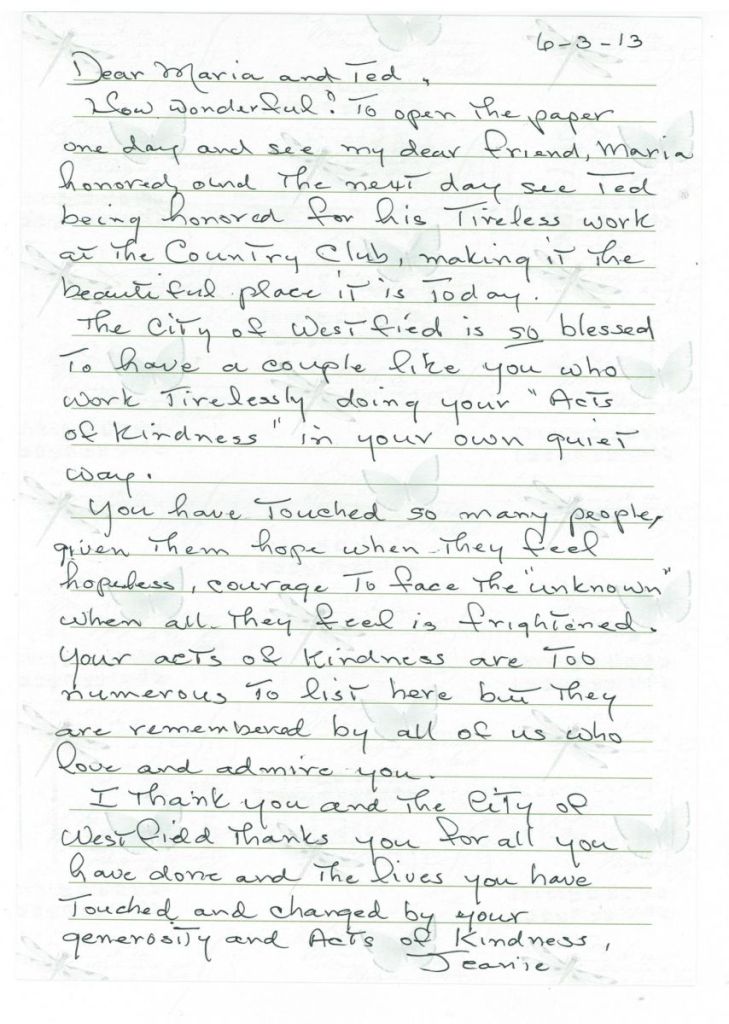 6-3-13
Dear Maria and Ted,
How wonderful! To open the paper
one day and see my dear friend, Maria
honored, and the next day see Ted
being honored for his Tireless work
at the Country Club, making it the
beautiful place it is Today.
The City of Westfied is so blessed
To have a couple like you who
work Tirelessly doing your "Acts
of Kindness" in your own quiet
way.
You have Touched so many people,
given Them hope when They feel
hopeless, courage To face the "unknown"
when all They feel is frightened.
Your acts of Kindness are Too
numerous To list here but They
are remembered by all of us who
love and admire you.
I Thank you and The City of
Westfield Thanks you for all you
have done and The lives you have
Touched and changed by your
generosity and Acts of Kindness,
Jeanie